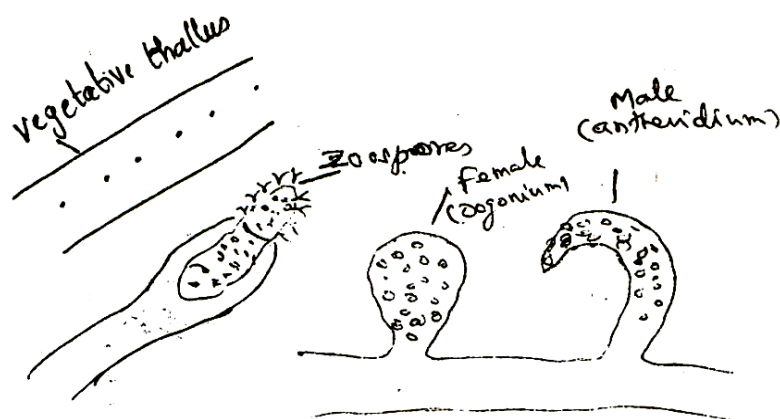 vegetative thallus
Zoospores
female
(oogonium)
Male
(antheridium)